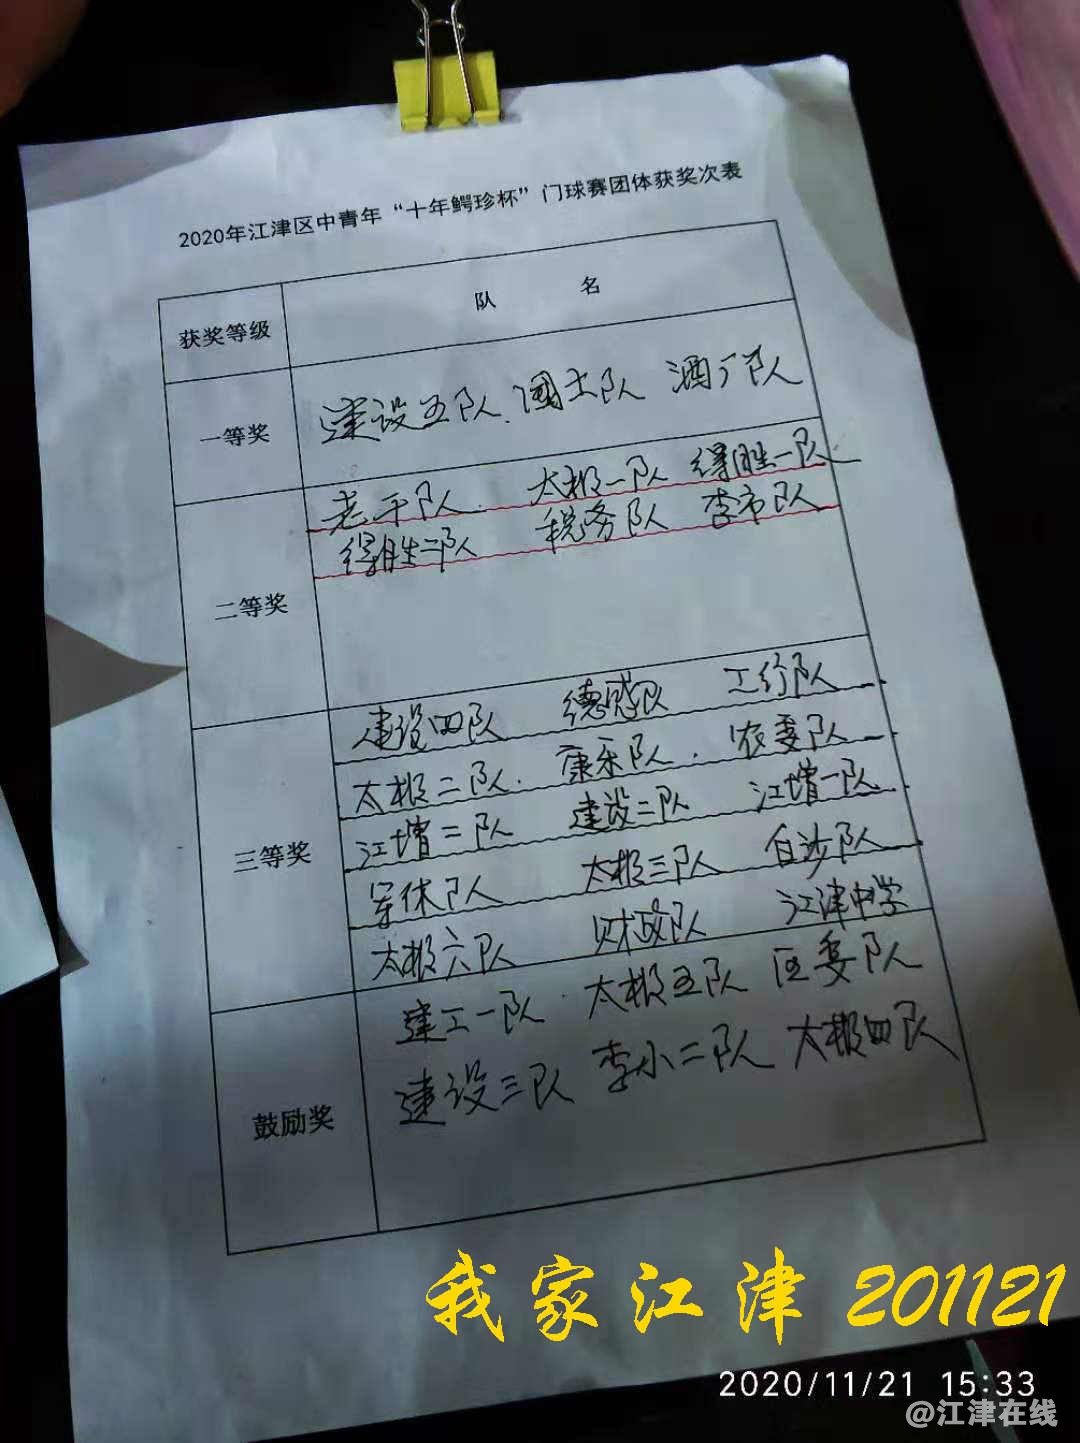 2020年江津区中青年“十年鳄珍杯”门球赛团体获奖次表
获奖等级 队 名
一等奖
建设五队、国土队 酒厂队
二等奖
老干队、太极一队 得胜一队
得胜二队 税务队 李市队
三等奖
建设四队 德感队 工行队
太极二队、康乐队、农委队
江增二队 建设二队 江增一队
军休队 太极三队 白沙队
太极六队 财政队 江津中学
鼓励奖
建工一队、太极五队 区委队
建设三队 李小二队 太极四队
我家江津 201121
2020/11/21 15:33
@江津在线